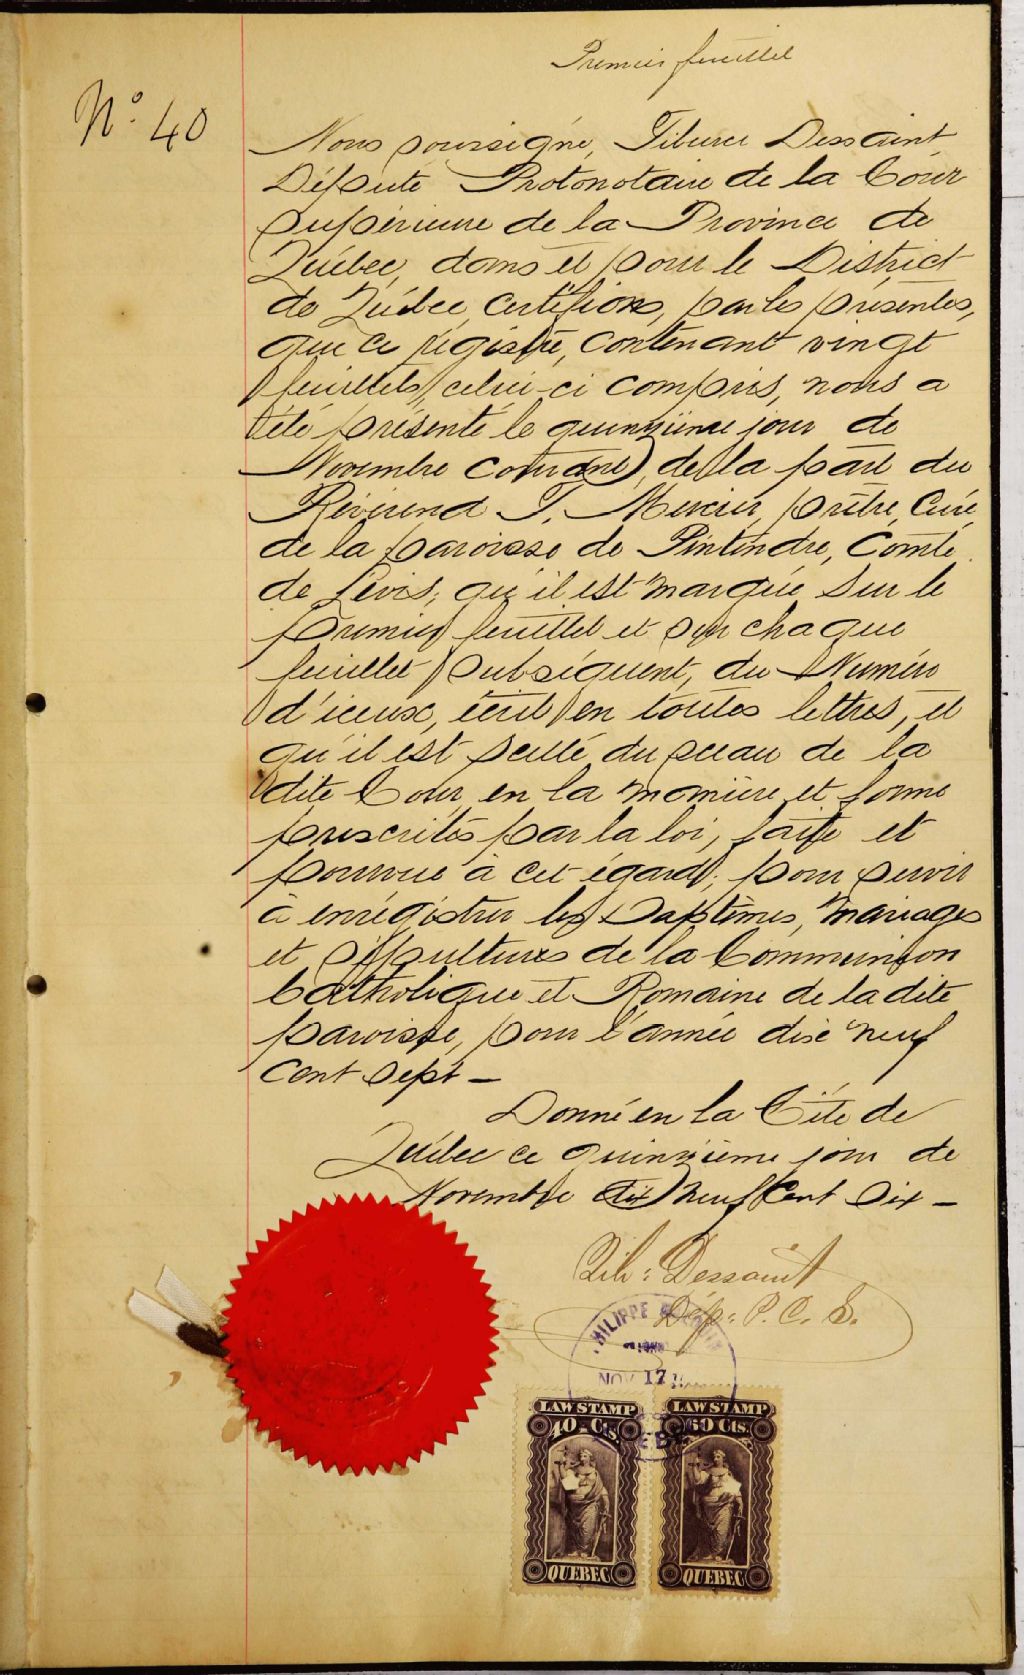 Premier feuillet
No. 40
Nous soussigné, Tiburce Dessaint
Député Protonotaire de la Cour
Supérieure de la Province de
Québec, dans et pour le District
de Québec, certifions, par les présentes,
que ce régistre, contenant vingt
feuillets, celui-ci compris, nous a
été présenté le quinzième jour de
Novembre courant, de la part du
Révérend J. Mercier, prêtre, Curé
de la paroisse de Pintendre, Comté
de Lévis; qu'il est marqué sur le
premier feuillet et sur chaque
feuillet subséquent, du Numéro
d'iceux, écrit en toutes lettres, et
qu'il est scellé du sceau de la
dite Cour, en la manière et forme
prescrites par la loi, faite et
pourvue à cet égard; pour servir
à enrégistrer les Baptêmes, mariages
et sépultures de la Communion
Catholique et Romaine de la dite
paroisse, pour l'année dix neuf
cent sept —
Donné en la Cité de
Québec ce quinzième jour de
Novembre dix neuf Cent Six —
Tib: Dessaint
Dép: P. C. S.
PHILIPPE
NOV 17
LAW STAMP
40 Cts.
QUEBEC
LAW STAMP
60 Cts.
QUEBEC